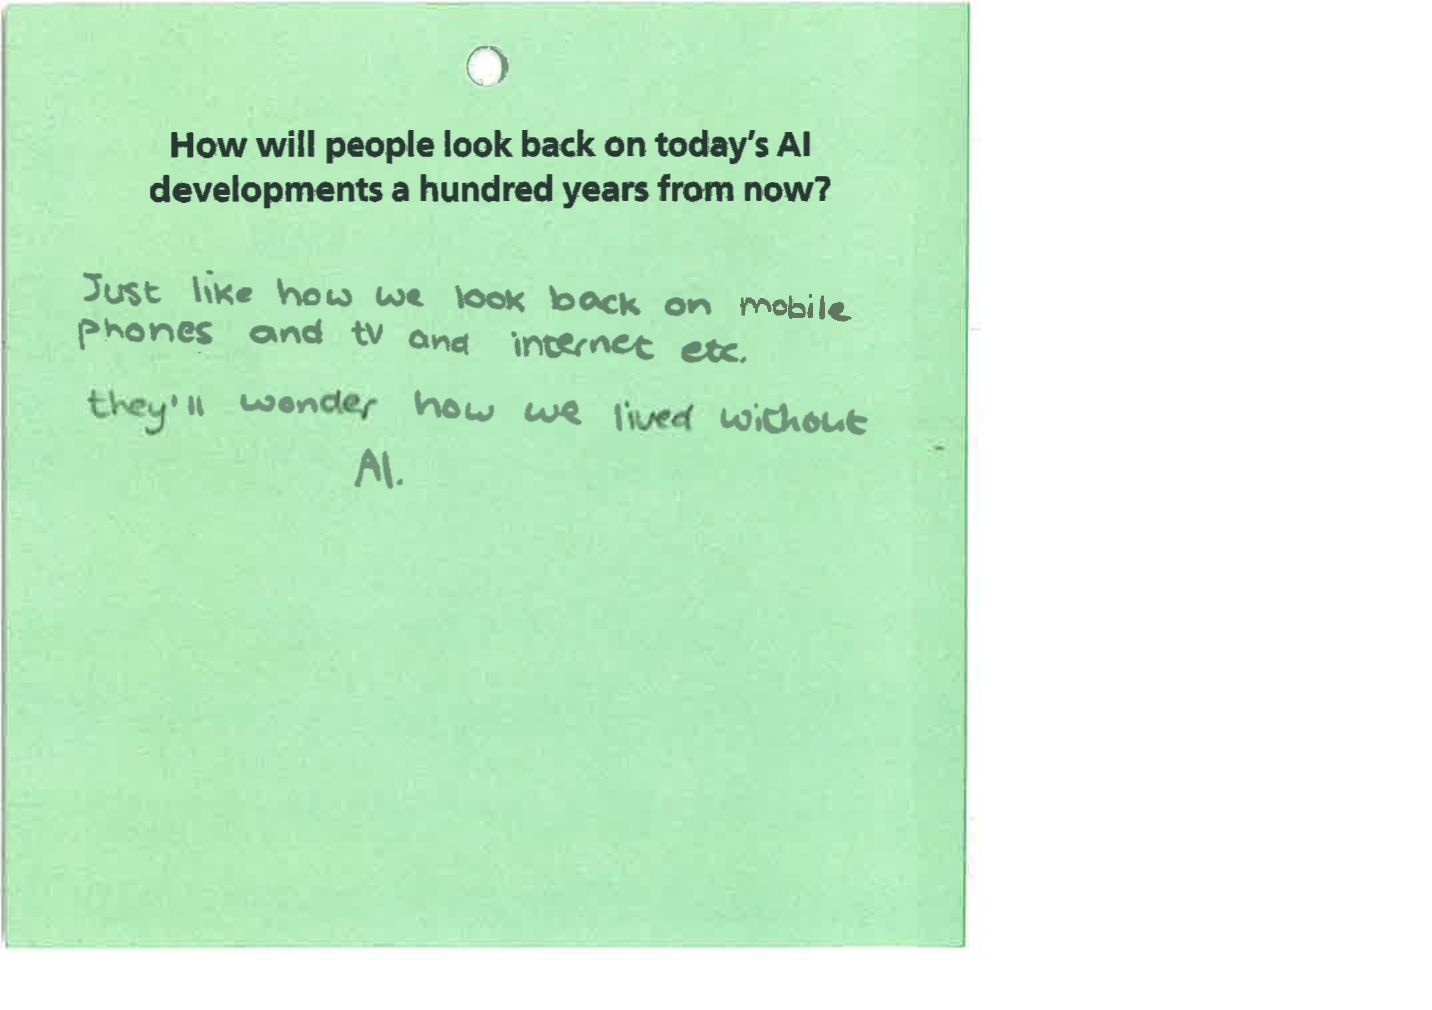 How will people look back on today's AI
developments a hundred years from now?
Just like how we look back on mobile
phones and tv and internet etc.
they'll wonder how we lived without
AI.